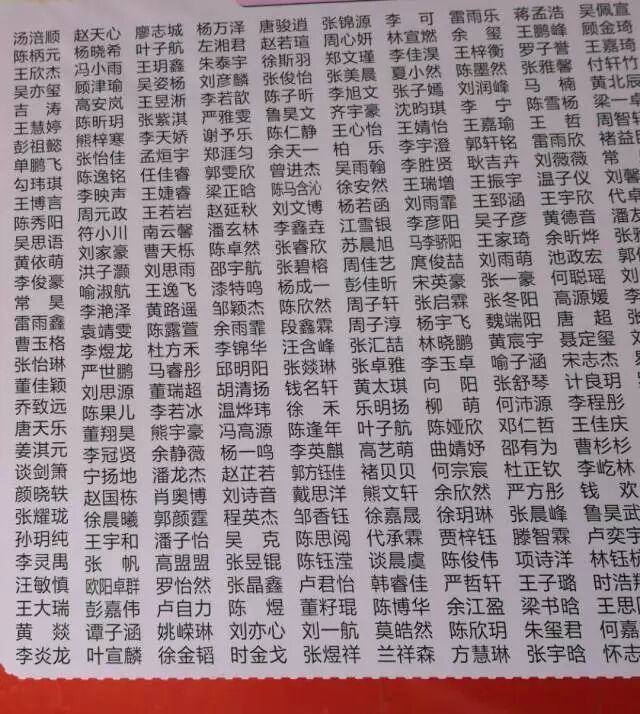 汤涪顺 赵天心 廖志城 杨万泽 唐骏逍 张锦源 李可 雷雨乐 蒋孟浩 吴佩宣
陈柄元 杨晓希 叶子航 左湘君 赵若瑄 周心妍 林宣燃 余玺 王鹏峰 顾金琦
王欣杰 冯小雨 王玥鑫 朱泰宇 徐斯羽 郑文瑾 李佳淏 王梓衡 罗子誉 王嘉琦
吴亦玺 顾津瑜 吴姿杨 刘彦麟 张俊怡 张美晨 夏小然 陈墨然 张雅馨 付轩竹
吉涛 高安岚 王昱淅 李若歆 陈子昕 李旭文 张子嫣 刘润峰 马楠 黄北辰
王慧婷 陈昕玥 张紫淇 严雅雯 鲁昊文 齐宇豪 沈昀琪 李宁 陈雪杨 梁一
彭祖懿 熊梓寒 李天娇 谢予乐 陈仁静 王心怡 王婧怡 王嘉瑜 王哲 周智轩
单鹏飞 张怡佳 孟烜宇 郑涯匀 余天一 柏乐 李宇澄 郭轩铭 雷雨欣 褚益
勾玮琪 陈逸铭 任佳睿 郭雯欣 曾进杰 吴雨霏 李胜贤 耿吉卉 刘薇薇 常
王博言 李映声 王婕睿 梁正晗 陈马含沁 徐安然 王瑞增 王振宇 温子仪 刘馨
陈秀阳 周元政 王若岩 赵延秋 刘文博 杨若函 刘雨霏 王郅涵 王宇欣 代
吴思语 符小川 南云馨 潘玄林 李鑫垚 江雪银 李彦阳 吴子彦 黄德音 潘
黄依萌 刘家豪 曹天栎 陈卓然 张睿欣 苏晨旭 马李骄阳 王家琦 余昕烨 张
李俊豪 洪子灏 刘思雨 邵宇航 张碧榕 周佳艺 庹俊喆 刘雨萌 池政宏 郭
常昊 喻淑航 王逸飞 漆特鸣 杨成一 彭佳昕 宋英豪 张一豪 何聪瑶 刘
雷雨鑫 李滟泽 黄路遥 邹颖杰 陈欣然 周子轩 张启霖 张冬阳 高源媛 李
曹玉格 袁靖雯 陈露萱 余雨霏 段鑫霖 周子淳 杨宇飞 魏端阳 唐超
张怡琳 李煜龙 杜方禾 李锦华 汪含峰 张汇喆 林晓鹏 黄宸宇 聂定玺 刘
董佳颖 严世鹏 马睿彤 邱明阳 张燚琳 张卓雅 李玉卓 喻子涵 宋志杰
乔致远 刘思源 董瑞超 胡清扬 钱名轩 黄太琪 向阳 张舒琴 计良玥
唐天乐 陈果儿 李若冰 温烨玮 徐禾 乐明扬 柳萌 何沛源 李程彤
姜淇元 董翔昊 熊宇豪 冯高源 陈逢年 叶子航 陈娅欣 邓仁哲 王佳庆
谈剑箫 李冠贤 余静薇 杨一鸣 李英麒 高艺萌 曲婧妤 邵有为 曹杉杉
颜晓轶 宁扬地 潘龙杰 赵芷若 郭方钰佳 褚贝贝 何宗宸 杜正钦 李屹林
张耀珑 赵国栋 肖奥博 刘诗音 戴思洋 熊文轩 余欣然 严方彤 钱欢
孙玥纯 徐晨曦 郭颜霆 程英杰 邹香钰 徐嘉晟 徐玥琳 张晨峰 鲁昊武
李灵禺 王宇和 潘子怡 吴克 陈思阅 代承霖 贾梓钰 滕智霖 卢奕宇
汪敏慎 张帆 高盟盟 张昱锟 陈钰滢 谈晨虞 陈俊伟 项诗洋 林钰
王大瑞 欧阳卓群 罗怡然 张晶鑫 卢君怡 韩睿佳 严哲轩 王子璐 时浩
黄燚 彭嘉伟 卢自力 陈煜 董籽琨 陈博华 余江盈 梁书晗 王思
李炎龙 谭子涵 姚嵘琳 刘亦心 刘一航 莫皓然 陈欣玥 朱玺君 何嘉
叶宣麟 徐金韬 时金戈 张煜祥 兰祥森 方慧琳 张宇晗 怀志